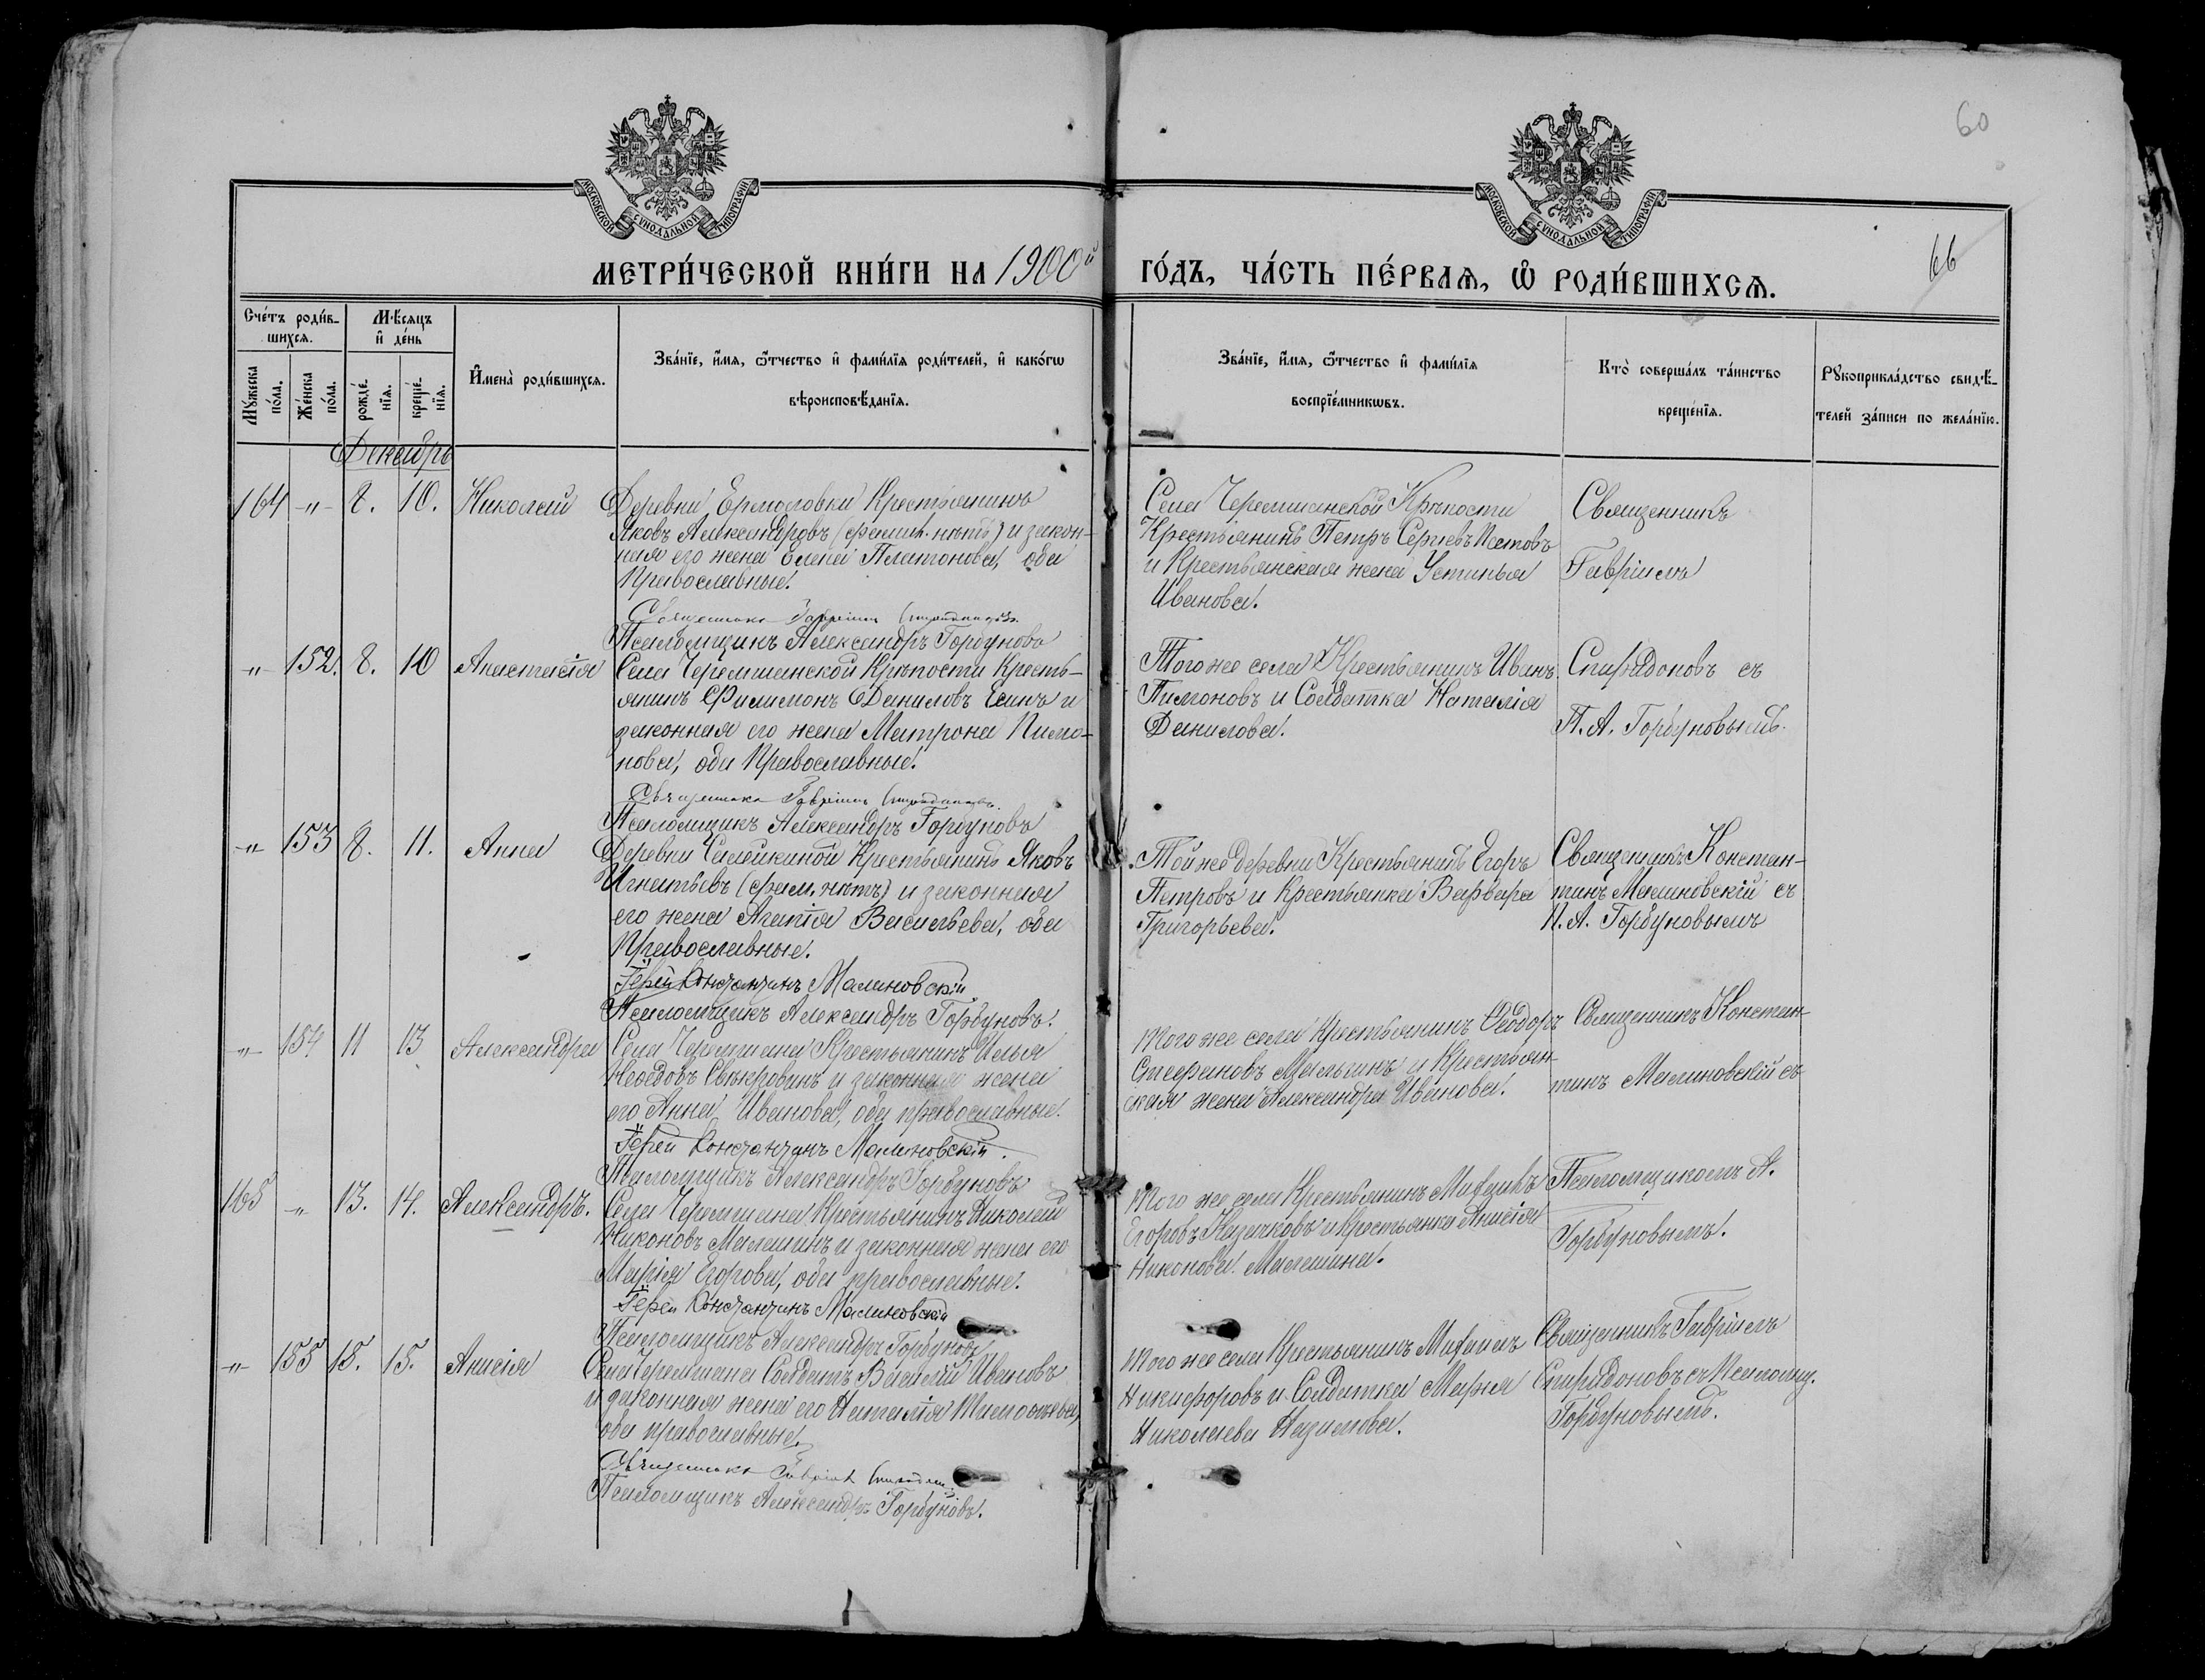 60
МОСКОВСКОЙ СУНОДАЛЬНОЙ ТИПОГРАФІИ
МОСКОВСКОЙ СУНОДАЛЬНОЙ ТИПОГРАФІИ
66
МЕТРИ́ЧЕСКОЙ КНИ́ГИ НА 1900й ГО́ДЪ, ЧА́СТЬ ПЕ́РВАѦ, Ѡ҆ РОДИ́ВШИХСѦ.
Сче́тъ роди́в-
шихсѧ.
Мѣ́сѧцъ
и҆ де́нь
Мꙋ́жеска
по́ла.
Же́нска
по́ла.
рожде́-
нїѧ.
креще́-
нїѧ.
И҆мена̀ роди́вшихсѧ.
Зва́нїе, и҆́мѧ, ѻ҆́тчество и҆ фами́лїѧ роди́телей, и҆ како́гѡ
вѣроисповѣ́данїѧ.
Зва́нїе, и҆́мѧ, ѻ҆́тчество и҆ фами́лїѧ
воспрїе́мникѡвъ.
Кто̀ соверша́лъ та́инство
креще́нїѧ.
Рꙋкоприкла́дство свидѣ́-
телей за́писи по жела́нїю.
Декабрь
164 -"- 8. 10. Николай
Деревни Ермоловки Крестьянинъ
Яковъ Александровъ (фамил. нѣтъ) и закон-
ная его жена Елена Платонова, оба
Православные.
Священникъ Гавріилъ Спиридоновъ.
Псаломщикъ Александръ Горбуновъ
Села Черемшанской Крѣпости
Крестьянинъ Петръ Сергѣевъ
и Крестьянская жена Устинья
Иванова.
Священникъ
Гавріилъ
-"- 152. 8. 10 Анастасія
Села Черемшанской Крѣпости Кресть-
янинъ Филимонъ Даниловъ Есинъ и
законная его жена Матрона Пимо-
нова, оба Православные.
Священникъ Гавріилъ Спиридоновъ.
Псаломщикъ Александръ Горбуновъ
Того же села Крестьянинъ Иванъ
Пимоновъ и Солдатка Наталія
Данилова.
Спиридоновъ съ
П. А. Горбуновымъ.
-"- 153 8. 11. Анна
Деревни Крестьянинъ Яковъ
Игнатьевъ (фам. нѣтъ) и законная
его жена Агапія Васильева, оба
Православные.
Іерей Константинъ Малиновскій
Псаломщикъ Александръ Горбуновъ.
Той же деревни Крестьянинъ Егоръ
Петровъ и Крестьянка Варвара
Григорьева.
Священникъ Констан-
тинъ Малиновскій съ
П. А. Горбуновымъ
-"- 154 11 13 Александра
Села Черемшана Крестьянинъ Илья
и законная жена
его Анна Иванова, оба православные.
Іерей Константинъ Малиновскій.
Псаломщикъ Александръ Горбуновъ
Того же села Крестьянинъ Ѳеодоръ
Стефановъ и Крестьян-
ская жена Александра Иванова.
Священникъ Констан-
тинъ Малиновскій съ
165 -"- 13. 14. Александръ.
Села Черемшана Крестьянинъ Николай
Никоновъ Малешинъ и законная жена его
Марія Егорова, оба православные.
Іерей Константинъ Малиновскій
Псаломщикъ Александръ Горбуновъ
Того же села Крестьянинъ Михаилъ
Егоровъ Казачковъ и Крестьянка Анисія
Никонова Малешина.
Псаломщикомъ А.
Горбуновымъ.
-"- 155 15. 15. Анисія
Села Черемшана Солдатъ Василій Ивановъ
и законная жена его Наталія Тимоѳѣева,
оба православные.
Священникъ Гавріилъ Спиридоновъ
Псаломщикъ Александръ Горбуновъ.
Того же села Крестьянинъ Михаилъ
Никифоровъ и Солдатка Марія
Николаева Назимова.
Священникъ Гавріилъ
Спиридоновъ съ Псаломщ.
Горбуновымъ.